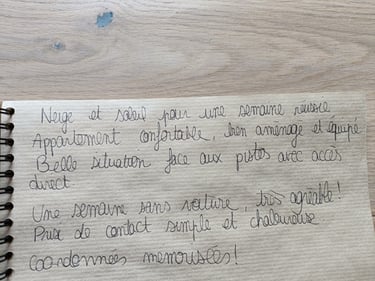 Neige et soleil pour une semaine réussie
Appartement confortable, bien aménagé et équipé
Belle situation face aux pistes avec accès
direct.
Une semaine sans voiture, très agréable !
Prise de contact simple et chaleureuse
Coordonnées mémorisées !